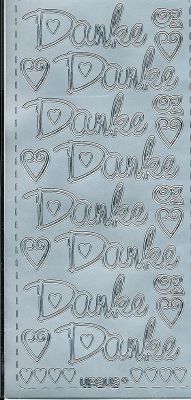 Danke
Danke
Danke
Danke
Danke
Danke
Danke
Danke
URSUS ®